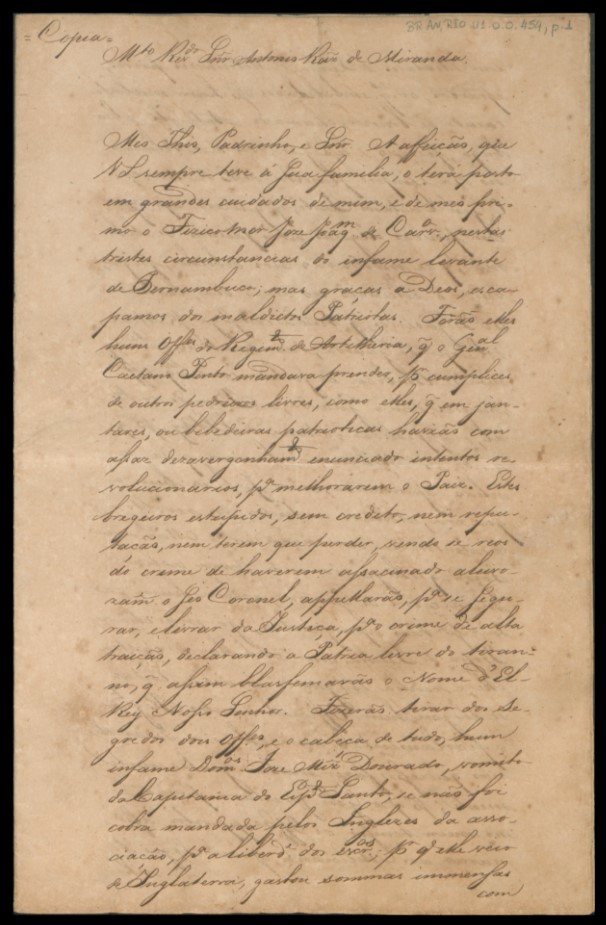 = Copia =
BR AN, RIO UI.0.0.459, p.1
M.to Rev.do Snr. Antonio Roiz de Miranda.
Meo Thio, Padrinho, e Snr. A afeição, que
V S sempre teve á Sua familia, o terá posto
em grandes cuidados de mim, e de meo pri-
mo o Fizico Mor Joze de Carv.o, nestas
tristes circunstancias do infame levante
de Pernambuco; mas graças a Deos, esca-
pamos dos maldictos Patriotas. Forão elles
huns Off.es do Regim.to de Artelheria, q̃ o Gen.al
Caetano Pinto mandara prender, p.r cumplices
de outros pedreiros livres, como elles, q̃ em jan-
tares, ou bebedeiras patrioticas havião com
assaz dezavergonham.to enunciado intentos re-
volucionarios, p.a melhorarem o Paiz. Estes
bregeiros estupidos, sem credito, nem repu-
tação, nem terem que perder, vendo se reos
do crime de haverem assacinado aleivo-
zam.e o Seo Coronel, appellarão, p.a se segu-
rar, e livrar da Justiça, p.a o crime de alta
traição, declarando a Patria livre do tiran-
no, q̃ assim blasfemavão o Nome d'El-
Rey Nosso Senhor. Fizerão tirar dos Se-
gredos dous Off.es, e o cabeça de tudo, hum
infame Dom.os Joze Miz̃ Dourado, vomito
da Capitania do Esp.to Santo, se não foi
cobra mandada pelos Inglezes da asso-
ciação, p.a a liberd.e dos escr.os; p.r q̃ elle veio
de Inglaterra, gastou sommas immensas
com